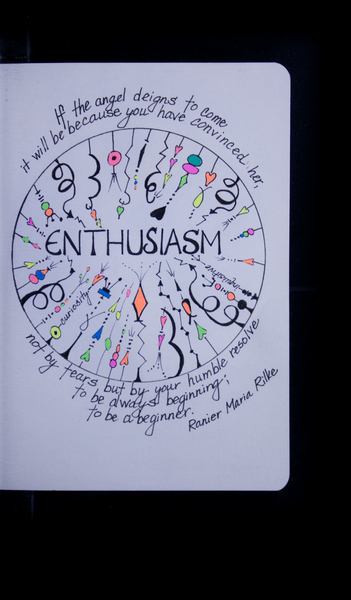 If the angel deigns to come,
it will be because you have convinced her,
ENTHUSIASM
curiosity
not by tears, but by your humble resolve
to be always beginning;
to be a beginner.
Ranier Maria Rilke